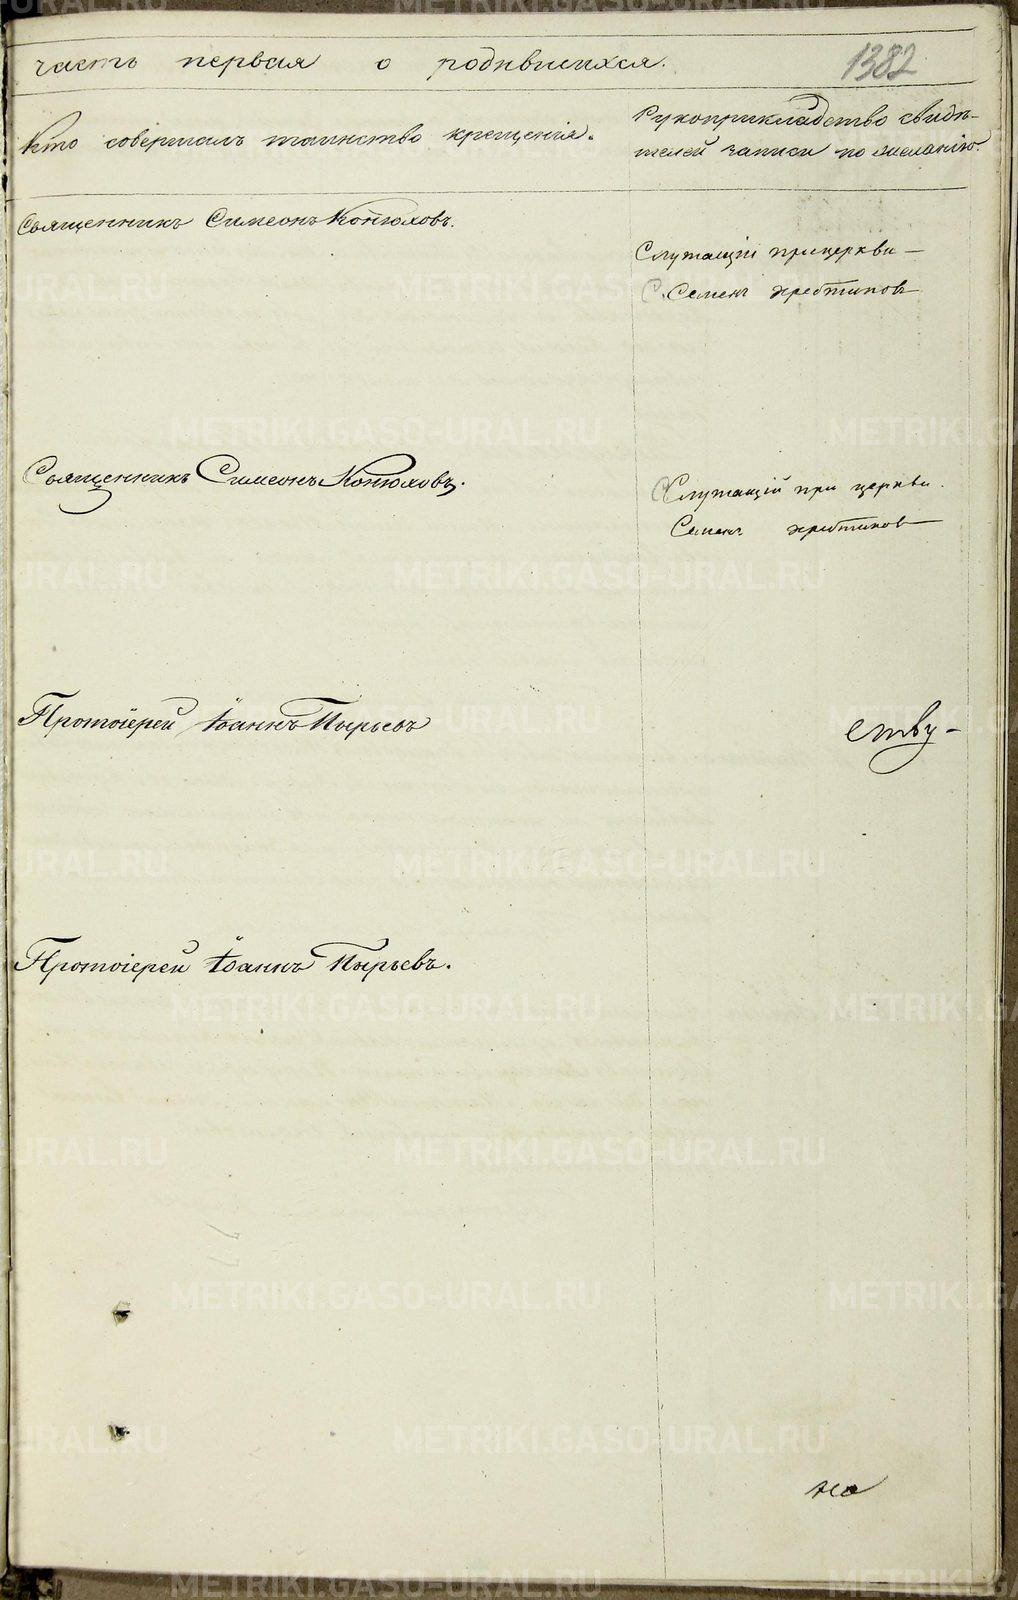 часть первая о родившихся.
1382
Кто совершалъ таинство крещенія.
Рукоприкладство свидѣ-
телей записи по желанію.
Священникъ Симеонъ Конюховъ.
Служащій прицеркви —
Семенъ Хребтиковъ
Священникъ Симеонъ Конюховъ.
Служащій при церкви.
Семенъ Хребтиковъ
Протоіерей Іоаннъ Пырьевъ
ству-
Протоіерей Іоаннъ Пырьевъ.
на
METRIKI.GASO-URAL.RU